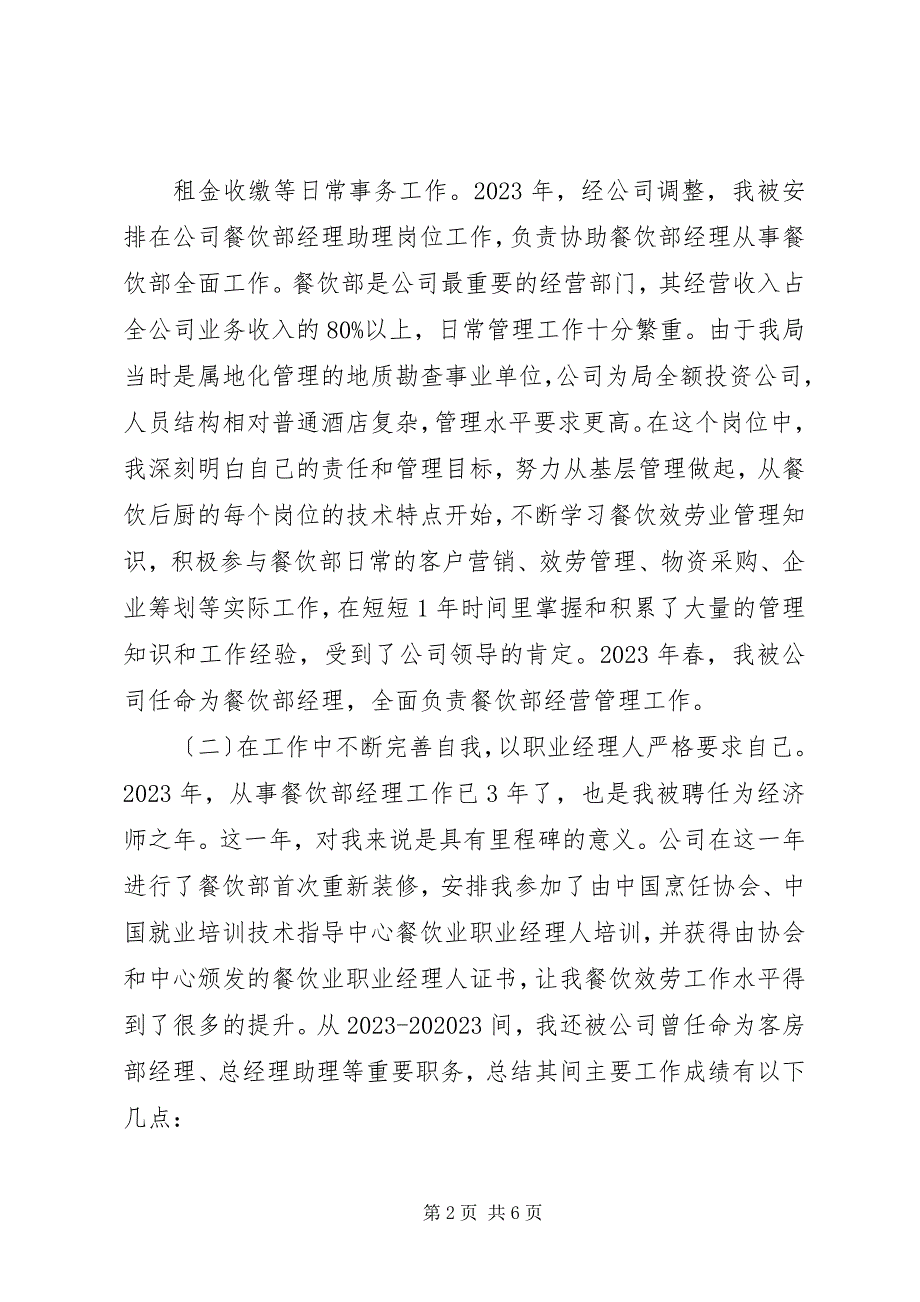 租金收缴等日常事务工作。2023 年，经公司调整，我被安
排在公司餐饮部经理助理岗位工作，负责协助餐饮部经理从事餐
饮部全面工作。餐饮部是公司最重要的经营部门，其经营收入占
全公司业务收入的 80%以上，日常管理工作十分繁重。由于我局
当时是属地化管理的地质勘查事业单位，公司为局全额投资公司，
人员结构相对普通酒店复杂，管理水平要求更高。在这个岗位中，
我深刻明白自己的责任和管理目标，努力从基层管理做起，从餐
饮后厨的每个岗位的技术特点开始，不断学习餐饮效劳业管理知
识，积极参与餐饮部日常的客户营销、效劳管理、物资采购、企
业筹划等实际工作，在短短 1 年时间里掌握和积累了大量的管理
知识和工作经验，受到了公司领导的肯定。2023 年春，我被公
司任命为餐饮部经理，全面负责餐饮部经营管理工作。
〔二〕在工作中不断完善自我，以职业经理人严格要求自己。
2023 年，从事餐饮部经理工作已 3 年了，也是我被聘任为经济
师之年。这一年，对我来说是具有里程碑的意义。公司在这一年
进行了餐饮部首次重新装修，安排我参加了由中国烹饪协会、中
国就业培训技术指导中心餐饮业职业经理人培训，并获得由协会
和中心颁发的餐饮业职业经理人证书，让我餐饮效劳工作水平得
到了很多的提升。从 2023-202023 间，我还被公司曾任命为客房
部经理、总经理助理等重要职务，总结其间主要工作成绩有以下
几点：
第 2 页 共 6 页